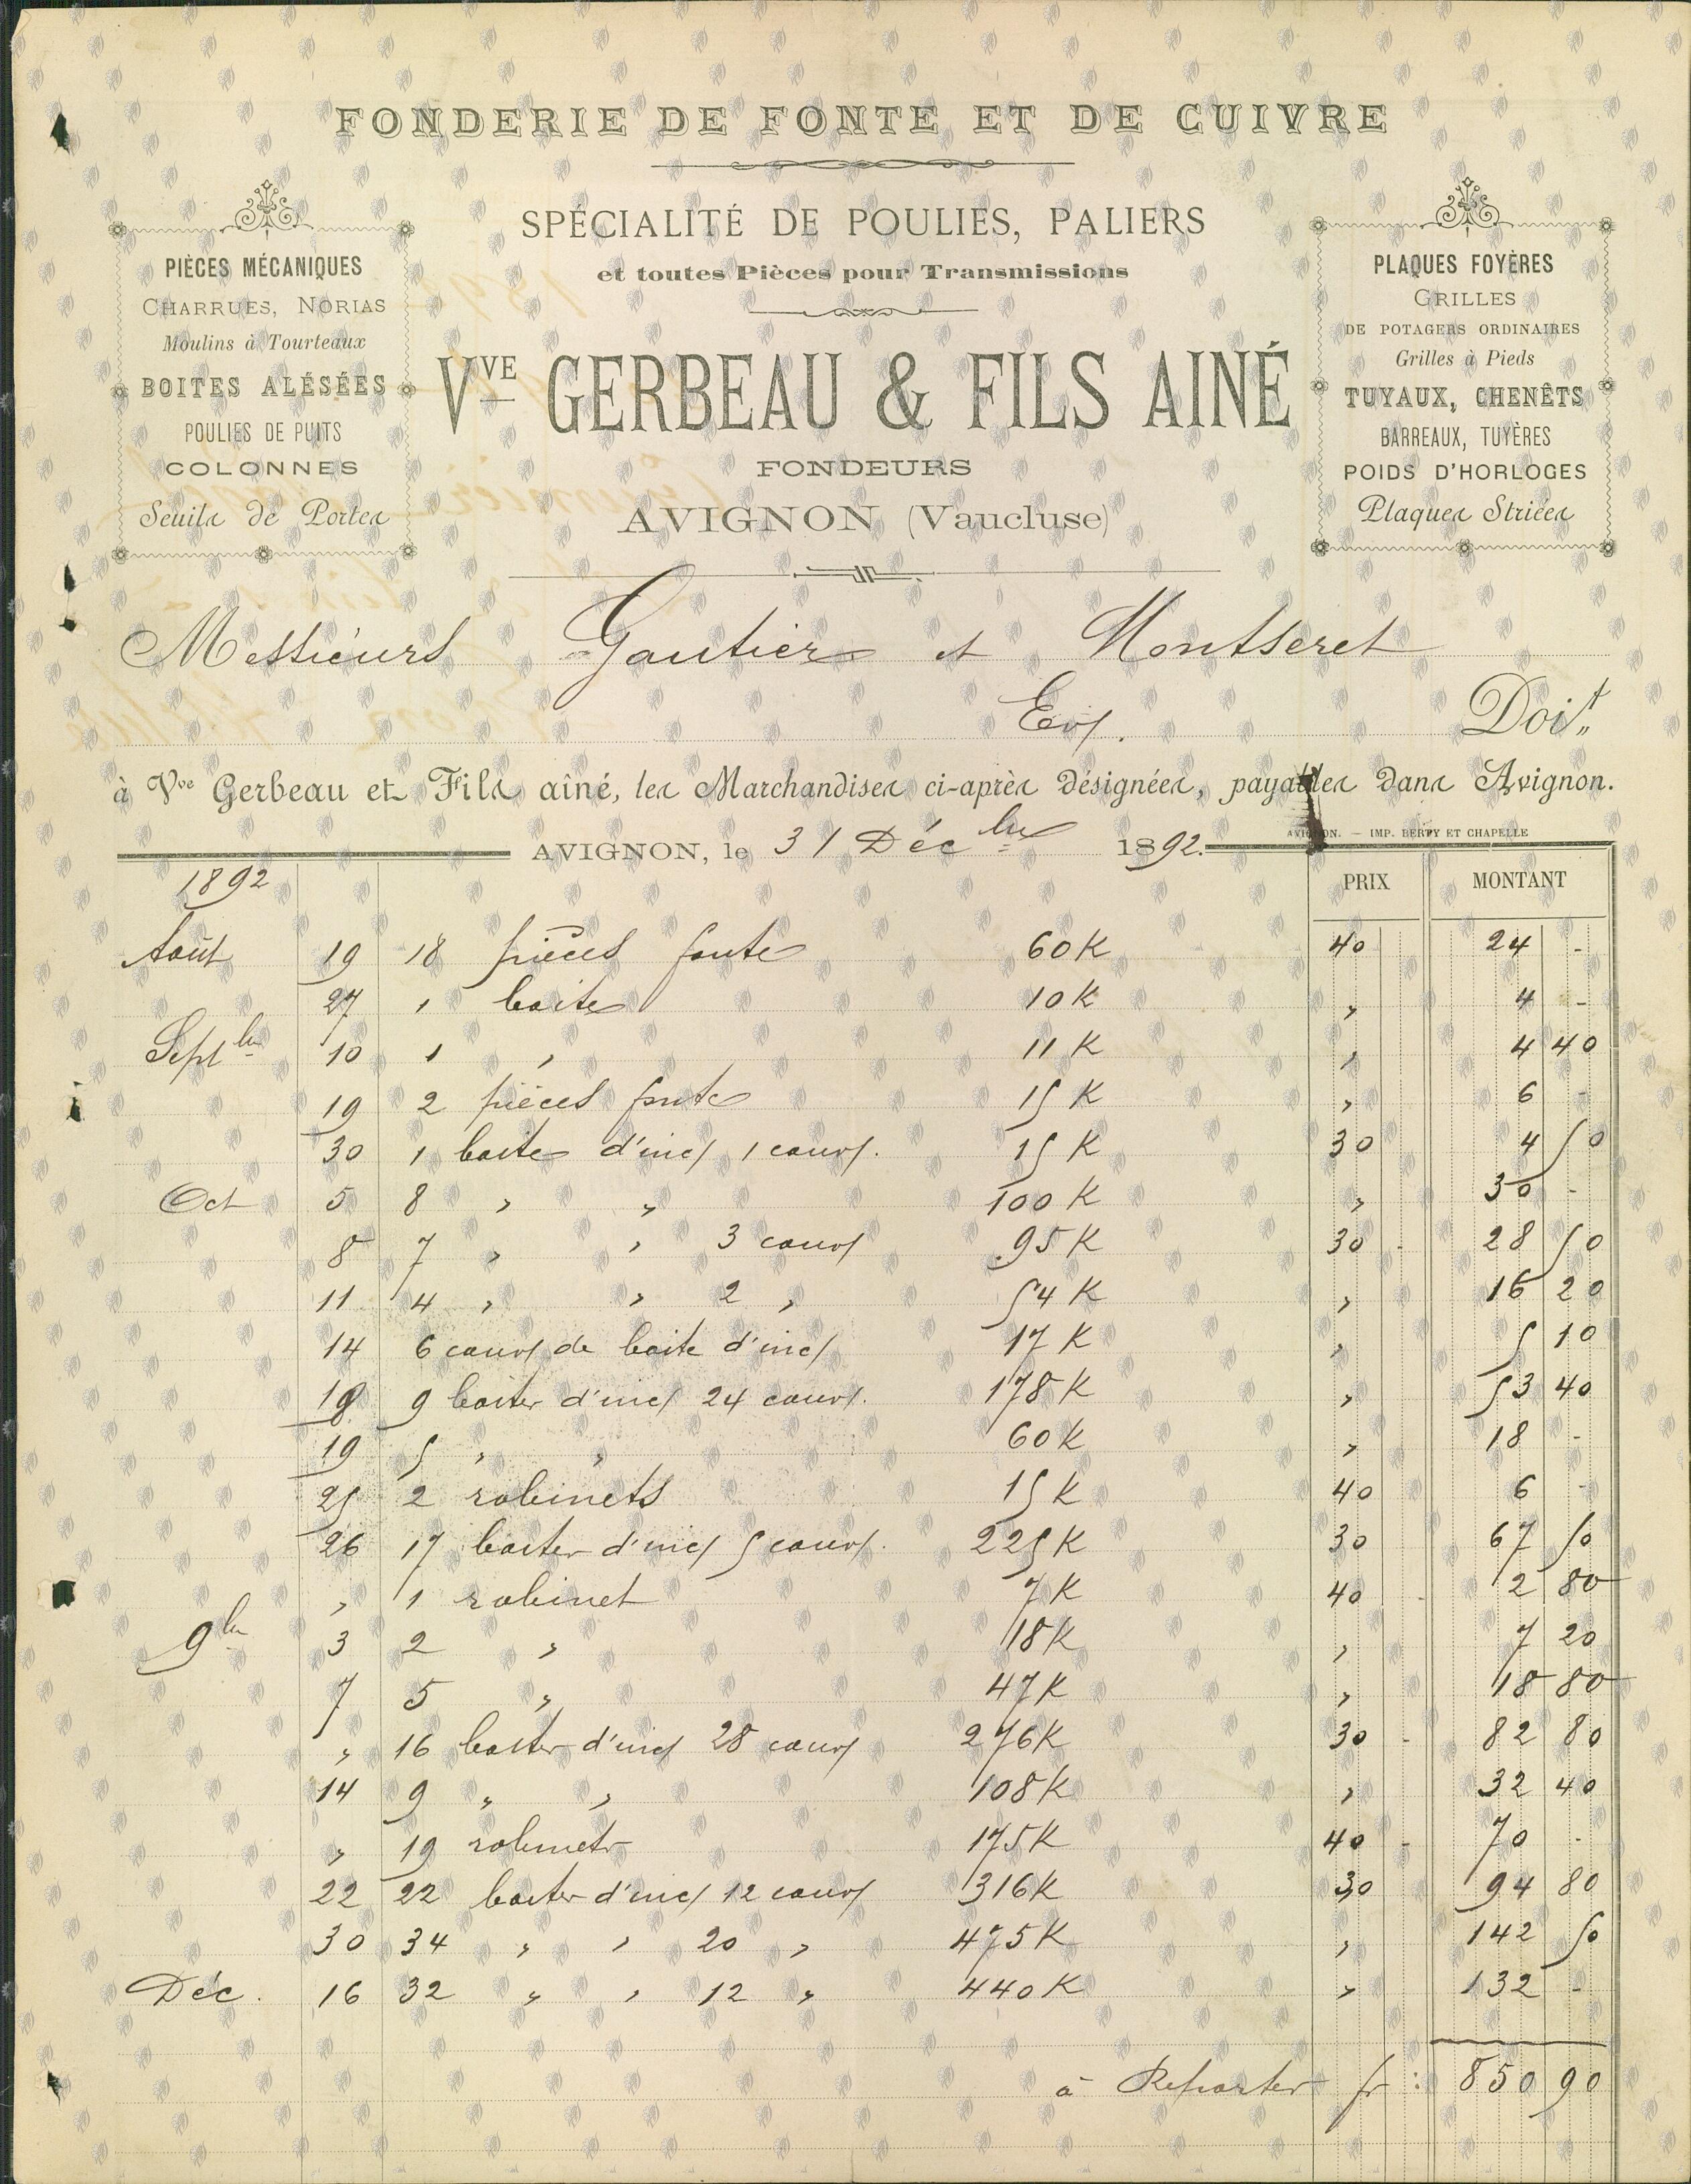 FONDERIE DE FONTE ET DE CUIVRE
SPÉCIALITÉ DE POULIES, PALIERS
et toutes Pièces pour Transmissions
VVE GERBEAU & FILS AINÉ
FONDEURS
AVIGNON (Vaucluse)
PIÈCES MÉCANIQUES
CHARRUES, NORIAS
Moulins à Tourteaux
BOITES ALÉSÉES
POULIES DE PUITS
COLONNES
Seuils de Portes
PLAQUES FOYÈRES
GRILLES
DE POTAGERS ORDINAIRES
Grilles à Pieds
TUYAUX, CHENÊTS
BARREAUX, TUYÈRES
POIDS D'HORLOGES
Plaques Striées
Messieurs Gautier et Montseret
Doit
à Vve Gerbeau et Fils aîné, les Marchandises ci-après désignées, payables dans Avignon.
AVIGNON. — IMP. BERTY ET CHAPELLE
AVIGNON, le 31 Décbre 1892.
1892 PRIX MONTANT
Août 19 18 pièces fonte 60 K 40 24 -
27 1 boite 10 K " 4 -
Septbre 10 1 " 11 K " 4 40
19 2 pièces fonte 15 K " 6 -
30 1 boite d'inc/ 1 couv/. 15 K 30 4 50
Oct 5 8 " " 100 K " 30 -
8 7 " " 3 couv/ 95 K 30 28 50
11 4 " " 2 " 54 K " 16 20
14 6 couv/ de boite d'inc/ 17 K " 5 10
18 9 boites d'inc/ 24 couv/. 178 K " 53 40
19 5 " " 60 K " 18 -
25 2 robinets 15 K 40 6 -
26 17 boites d'inc/ 5 couv/. 225 K 30 67 50
" 1 robinet 7 K 40 2 80
9bre 3 2 " 18 K " 7 20
7 5 " 47 K " 18 80
" 16 boites d'inc/ 28 couv/ 276 K 30 82 80
14 9 " " 108 K " 32 40
" 19 robinets 175 K 40 70 -
22 22 boites d'inc/ 12 couv/ 316 K 30 94 80
30 34 " " 20 " 475 K " 142 50
Déc. 16 32 " " 12 " 440 K " 132 -
à Reporter fr : 850 90